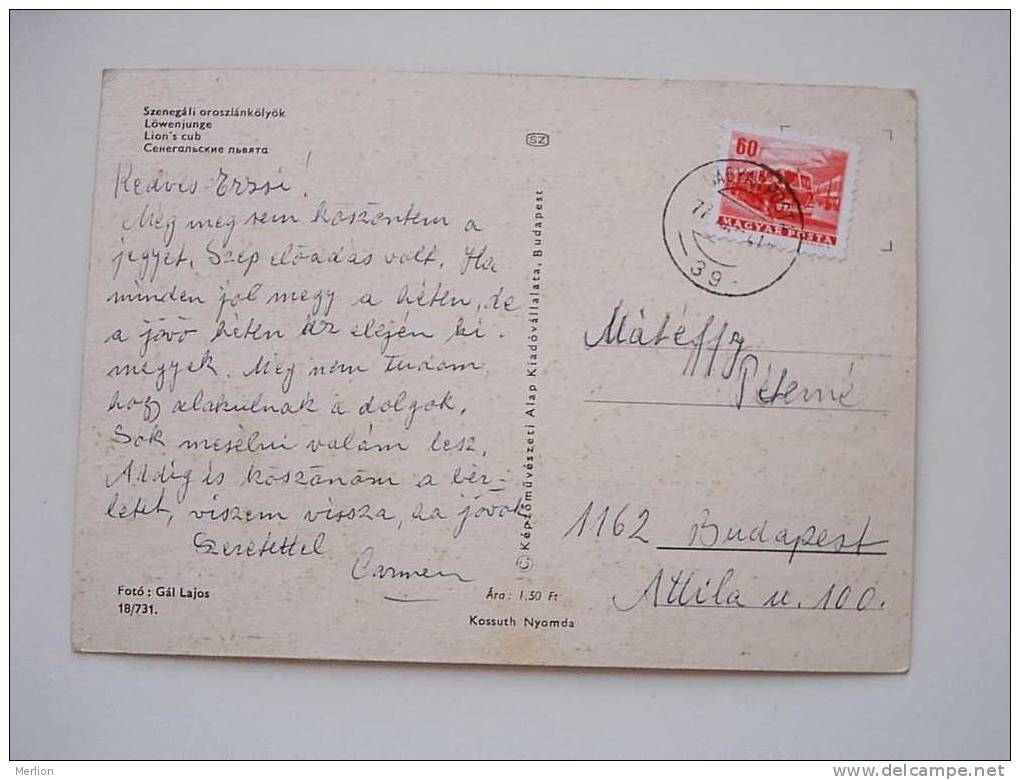 Szenegáli oroszlánkölyök
Löwenjunge
Lion's cub
Сенегальские львята
SZ
60
MAGYAR POSTA
39
Kedves Erzsi!
Még meg sem köszöntem a
jegyet, Szép előadás volt. Ha
minden jól megy a héten, de
a jövő héten az elején ki-
megyek. Még nem tudom,
hogy alakulnak a dolgok.
Sok mesélni valóm lesz.
Addig is köszönöm a bér-
letet, viszem vissza, ha jövök
Szeretettel
Carmen
Fotó: Gál Lajos
18/731.
Ára: 1,50 Ft
Kossuth Nyomda
© Képzőművészeti Alap Kiadóvállalata, Budapest
Mátéffy
Péterné
1162 Budapest
Attila u. 100.
Merlion
http://www.delcampe.net